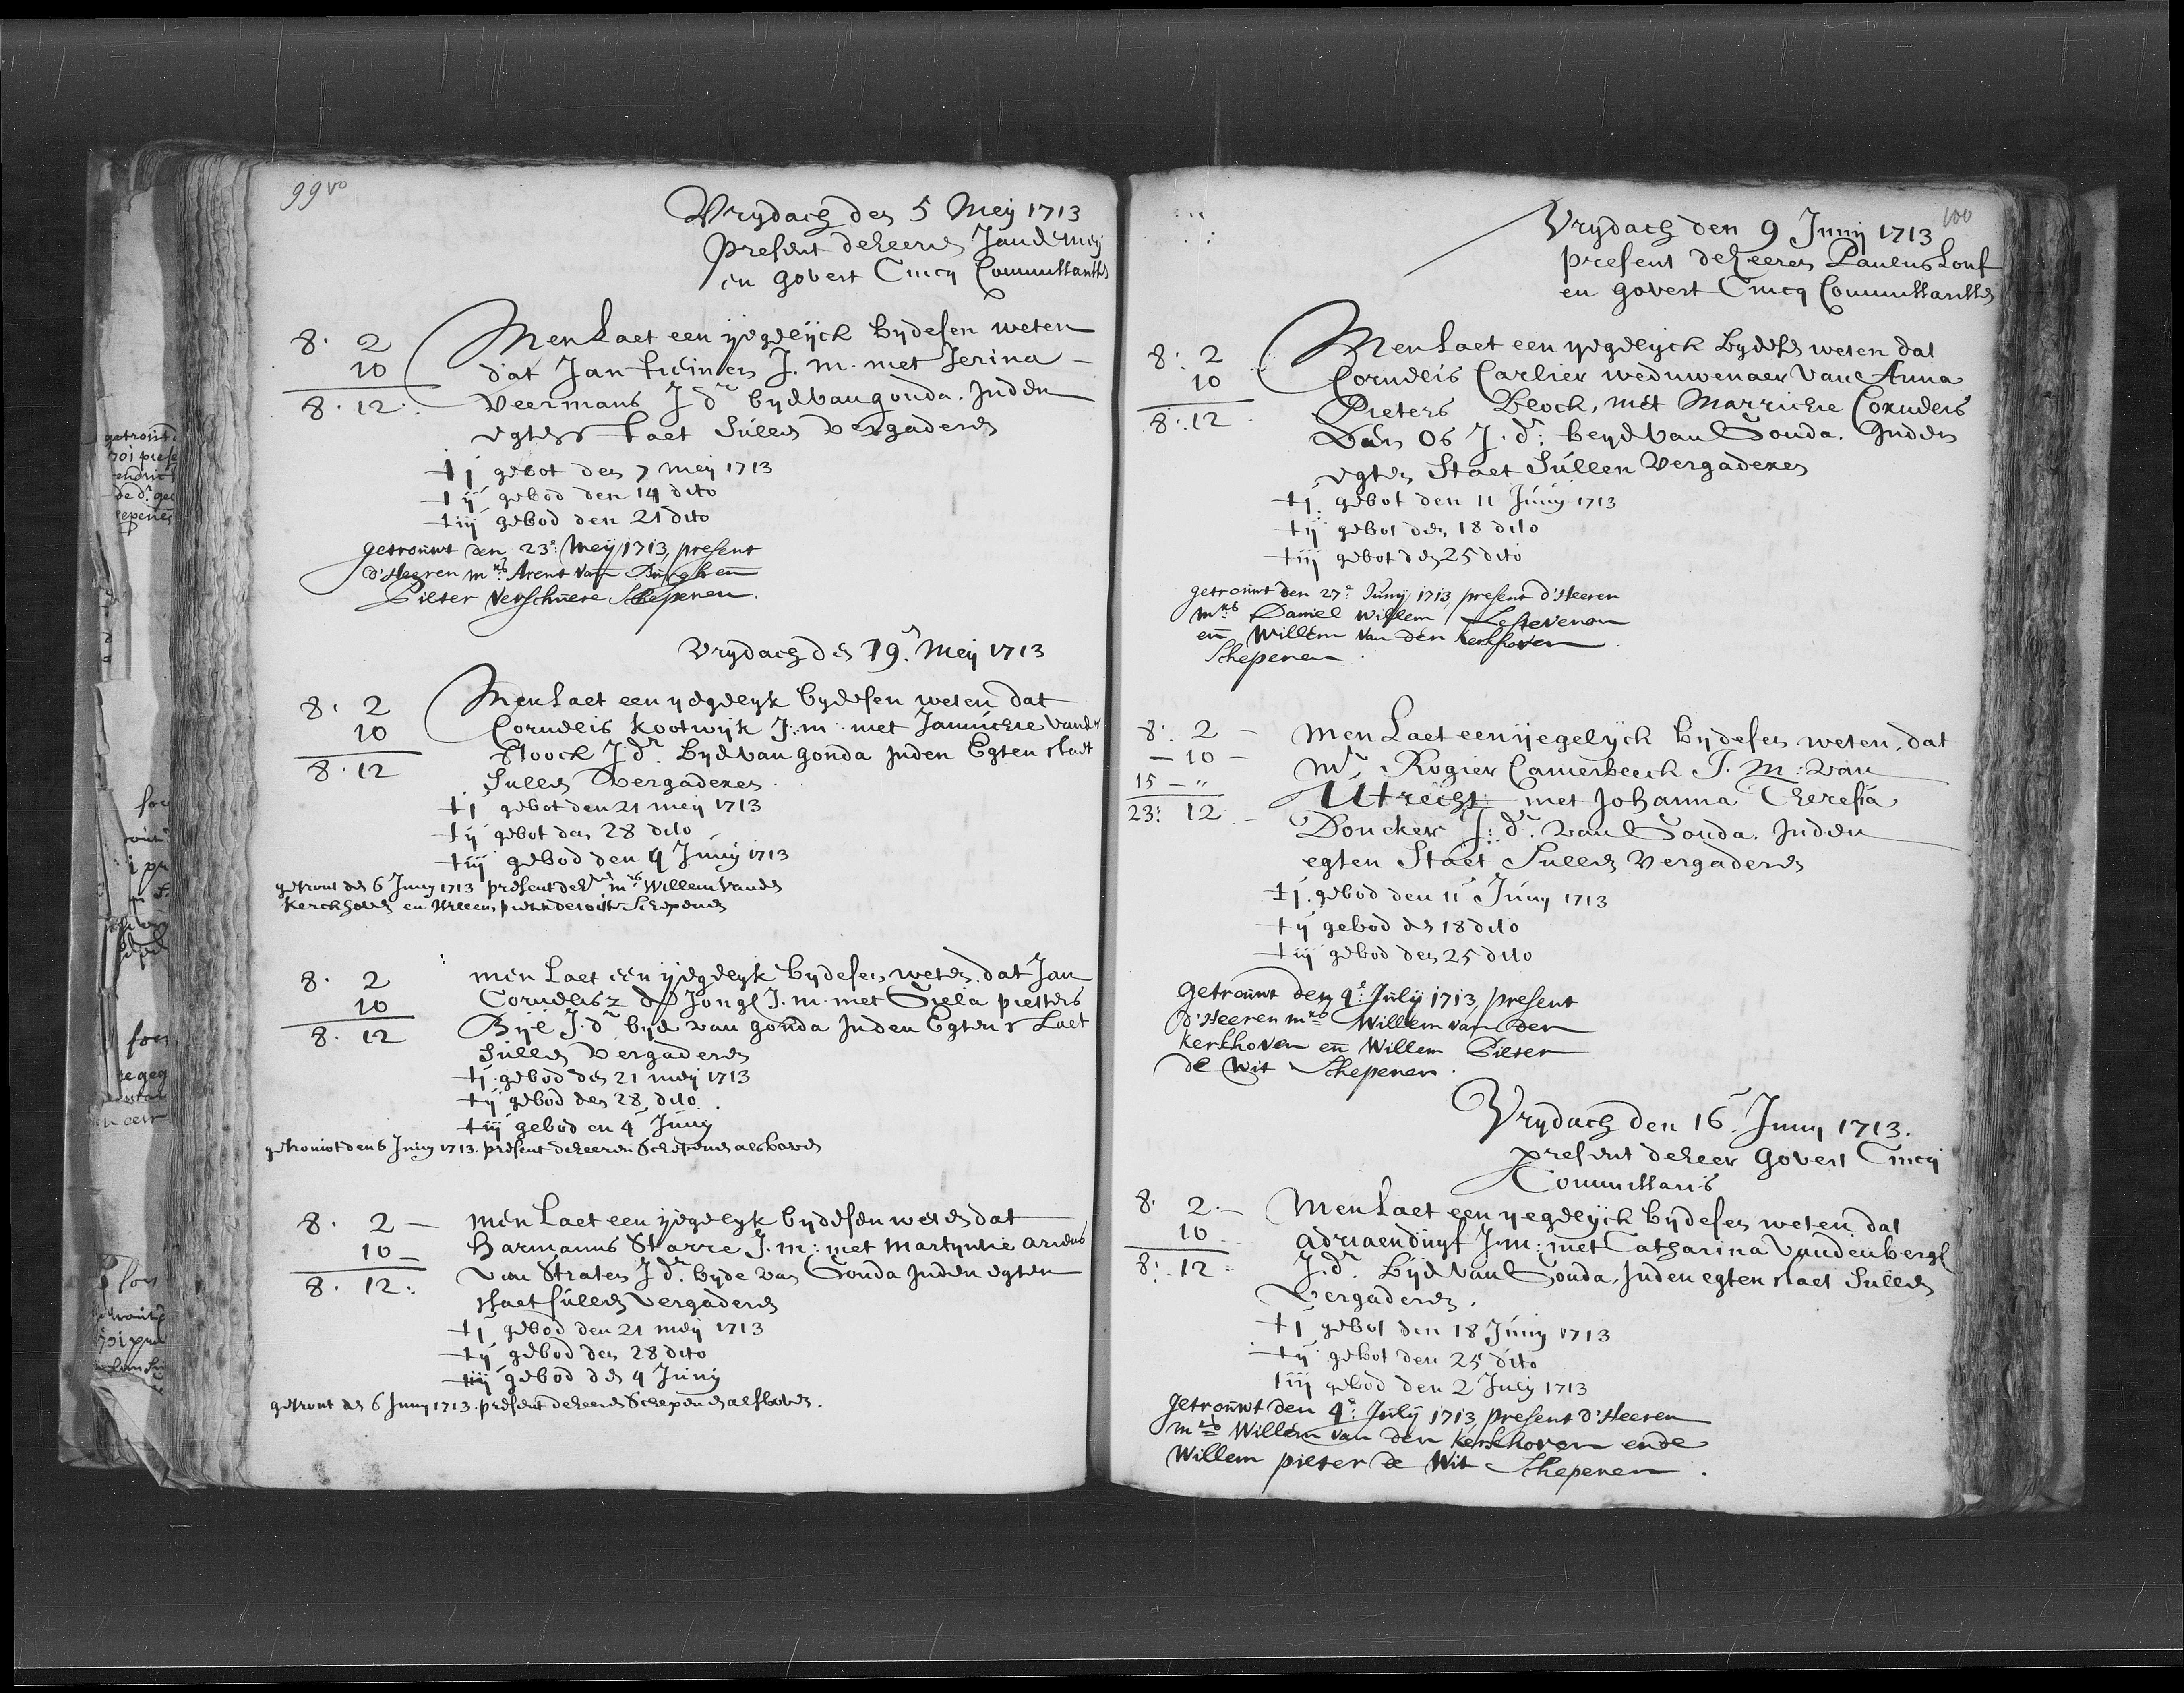 99vo
Vrydach den 5 Meij 1713
present de heeren Jan de Meij
en Govert Cincq Committarisse
8. 2
10
8. 12.
Men Laet een ijegelijck bijdesen weten
dat Jan J. M. met Jerina
Veermans J dr beijd van gouda. Inden
egten staet Sullen vergaderen
+j gebot den 7 meij 1713
+ij gebod den 14 dito
+iij gebod den 21 dito
getrouwt den 23e: Meij 1713, present
d'Heeren mrs Arent van Burgh en
Pieter Verschuere Schepenen.
Vrydach den 19. Meij 1713
8. 2
10
8. 12
Men Laet een ijegelyk bydesen weten dat
Cornelis Kootwijk J: m: met Jannichie vander
J: dr. Byd van gouda Inden Egten staet
Sullen Vergaderen
+j gebot den 21 meij 1713
+ij gebot den 28 dito
+iij gebod den 4 Junij 1713
getrout den 6 Juny 1713 present de hren mrs Willem vanden
Kerckhoven en Willem pieter de wit Schepenen
8. 2
10
8. 12
men Laet een ijegelyk bydesen weten dat Jan
Cornelisz de Jongh J. m. met Giela pieters
Bijl J. dr byd van gouda Inden Egten s Laet
Sullen Vergaderen
+j gebod den 21 meij 1713
+ij gebod den 28 dito
+iij gebod en 4 Junij
getrouwt den 6 Juny 1713. present de heeren Schepenen als boven
8. 2 —
10 —
8. 12:
men Laet een ijegelyk bydesen weten dat
Harmanus Starre J. m: met Martyntie ariens
van Straten J dr. byde van Gouda Inden egten
staet sullen Vergaderen
+j gebod den 21 meij 1713
+ij gebod den 28 dito
+iij gebod den 4 Junij
getrout den 6 Juny 1713. present de heeren Schepenen als boven.
100
Vrijdach den 9 Junij 1713
present de heeren Paulus Lonk
en Govert Cincq Committarisse
8: 2
10
8: 12
Men Laet een ijegelijck bydesen weten dat
Cornelis Carlier weduwenaer van Anna
Pieters Block, met Marrichie Cornelis
Van Os J. dr: beyd van Gouda. Inden
egten Staet Sullen Vergaderen
+j. gebot den 11 Junij 1713
+ij gebot den 18 dito
+iij gebot den 25 dito
getrouwt den 27e Junij 1713, present d'Heeren
mrs Daniel Willem Lestevenon
en Willem van den Kerkhoven
Schepenen.
8: 2 —
— 10 —
15 — "
23: 12 —
Men Laet een ijegelijck bydesen weten, dat
Mr. Rogier Camerbeeck J. M: van
Utrecht met Johanna Theresia
Doncker J: dr. van Gouda. Inden
egten Staet Sullen Vergaderen
+j. gebod den 11 Junij 1713
+ij gebod den 18 dito
+iij gebod den 25 dito
Getrouwt den 4e Julij 1713, present
d'Heeren mrs Willem van den
Kerkhoven en Willem Pieter
de Wit Schepenen.
Vrydach den 16 Juny 1713.
present de heer Govert Cincq
Committaris
8. 2. —
10 —
8: 12
Men Laet een ijegelijck bydesen weten dat
Adriaen duijf J: m: met Catharina Vandenbergh
J. dr. Bijd van Gouda, Inden egten staet Sullen
Vergaderen.
+j gebot den 18 Junij 1713
+ij gebot den 25 dito
+iij gebod den 2 Julij 1713
Getrouwt den 4e: Julij 1713, present d'Heeren
mrs Willem van den Kerkhoven ende
Willem pieter de Wit Schepenen.